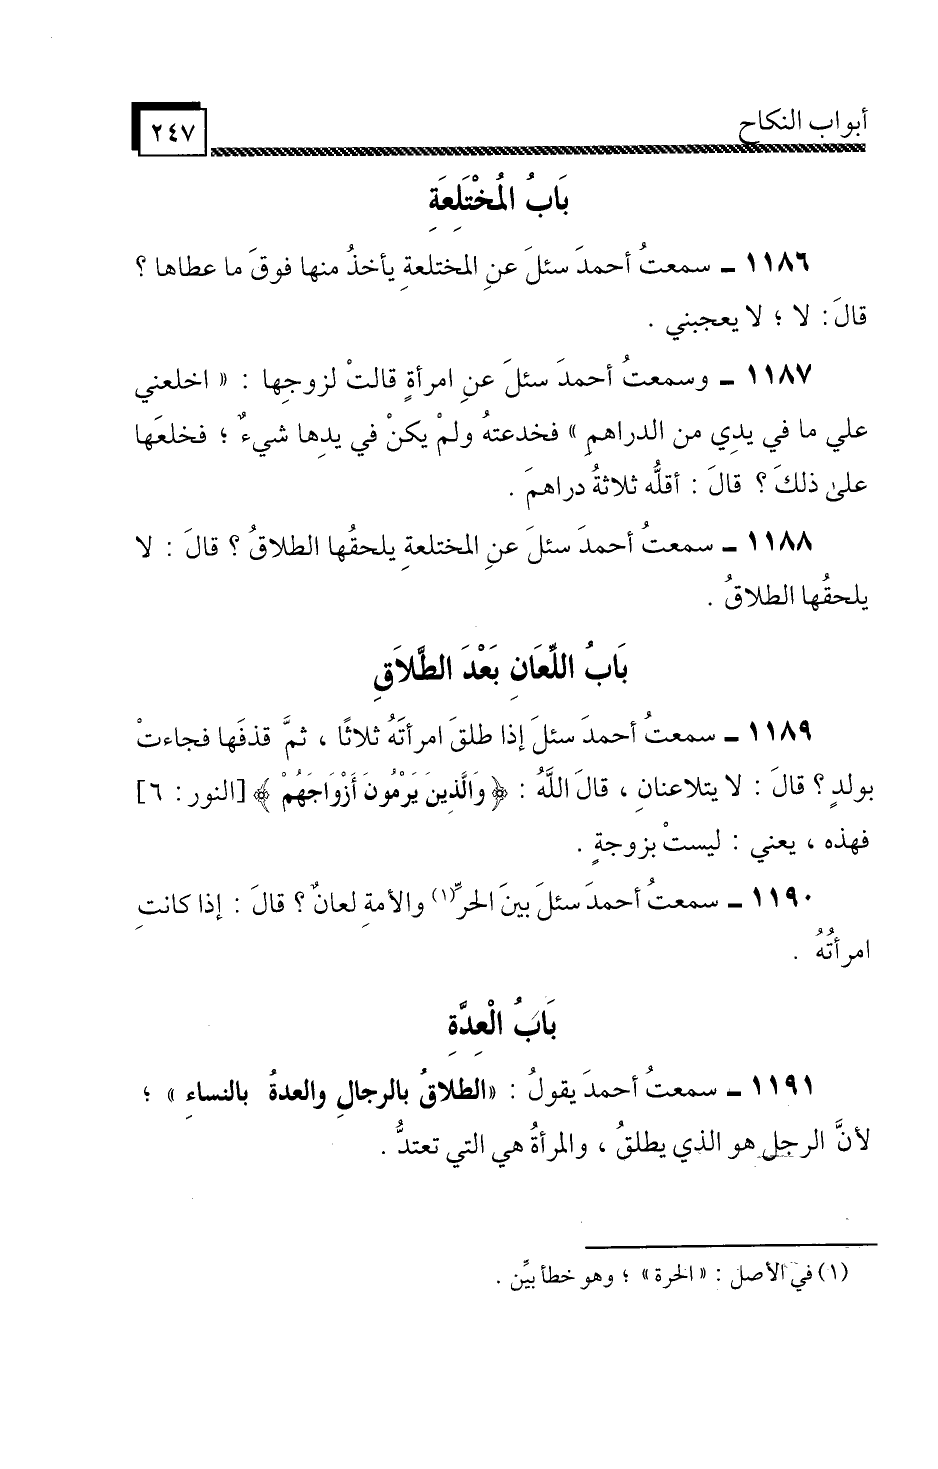 أبواب النكاح
٢٤٧
بَابُ المُخْتَلَعَةِ
١١٨٦ ـ سمعتُ أحمدَ سئلَ عنِ المختلعةِ يأخذُ منها فوقَ ما عطاها ؟
قالَ : لا ؛ لا يعجبني .
١١٨٧ ـ وسمعتُ أحمدَ سئلَ عنِ امرأةٍ قالتْ لزوجِها : « اخلعني
علي ما في يدِي من الدراهمِ » فخدعتهُ ولمْ يكنْ في يدِها شيءٌ ؛ فخلعَها
علىٰ ذلكَ ؟ قالَ : أقلُّه ثلاثةُ دراهمَ .
١١٨٨ ـ سمعتُ أحمدَ سئلَ عنِ المختلعةِ يلحقُها الطلاقُ ؟ قالَ : لا
يلحقُها الطلاقُ .
بَابُ اللِّعَانِ بَعْدَ الطَّلَاقِ
١١٨٩ ـ سمعتُ أحمدَ سئلَ إذا طلقَ امرأتَهُ ثلاثًا ، ثمَّ قذفَها فجاءتْ
بولدٍ ؟ قالَ : لا يتلاعنانِ ، قالَ اللَّهُ : ﴿ وَالَّذِينَ يَرْمُونَ أَزْوَاجَهُمْ ﴾ [النور : ٦]
فهذه ، يعني : ليستْ بزوجةٍ .
١١٩٠ ـ سمعتُ أحمدَ سئلَ بينَ الحرِّ(١) والأمةِ لعانٌ ؟ قالَ : إذا كانتِ
امرأتُهُ .
بَابُ الْعِدَّةِ
١١٩١ ـ سمعتُ أحمدَ يقولُ : «الطلاقُ بالرجالِ والعدةُ بالنساءِ » ؛
لأنَّ الرجل هو الذي يطلقُ ، والمرأةُ هي التي تعتدُّ .
(١) في الأصل : «الحرة» ؛ وهو خطأ بيِّن .